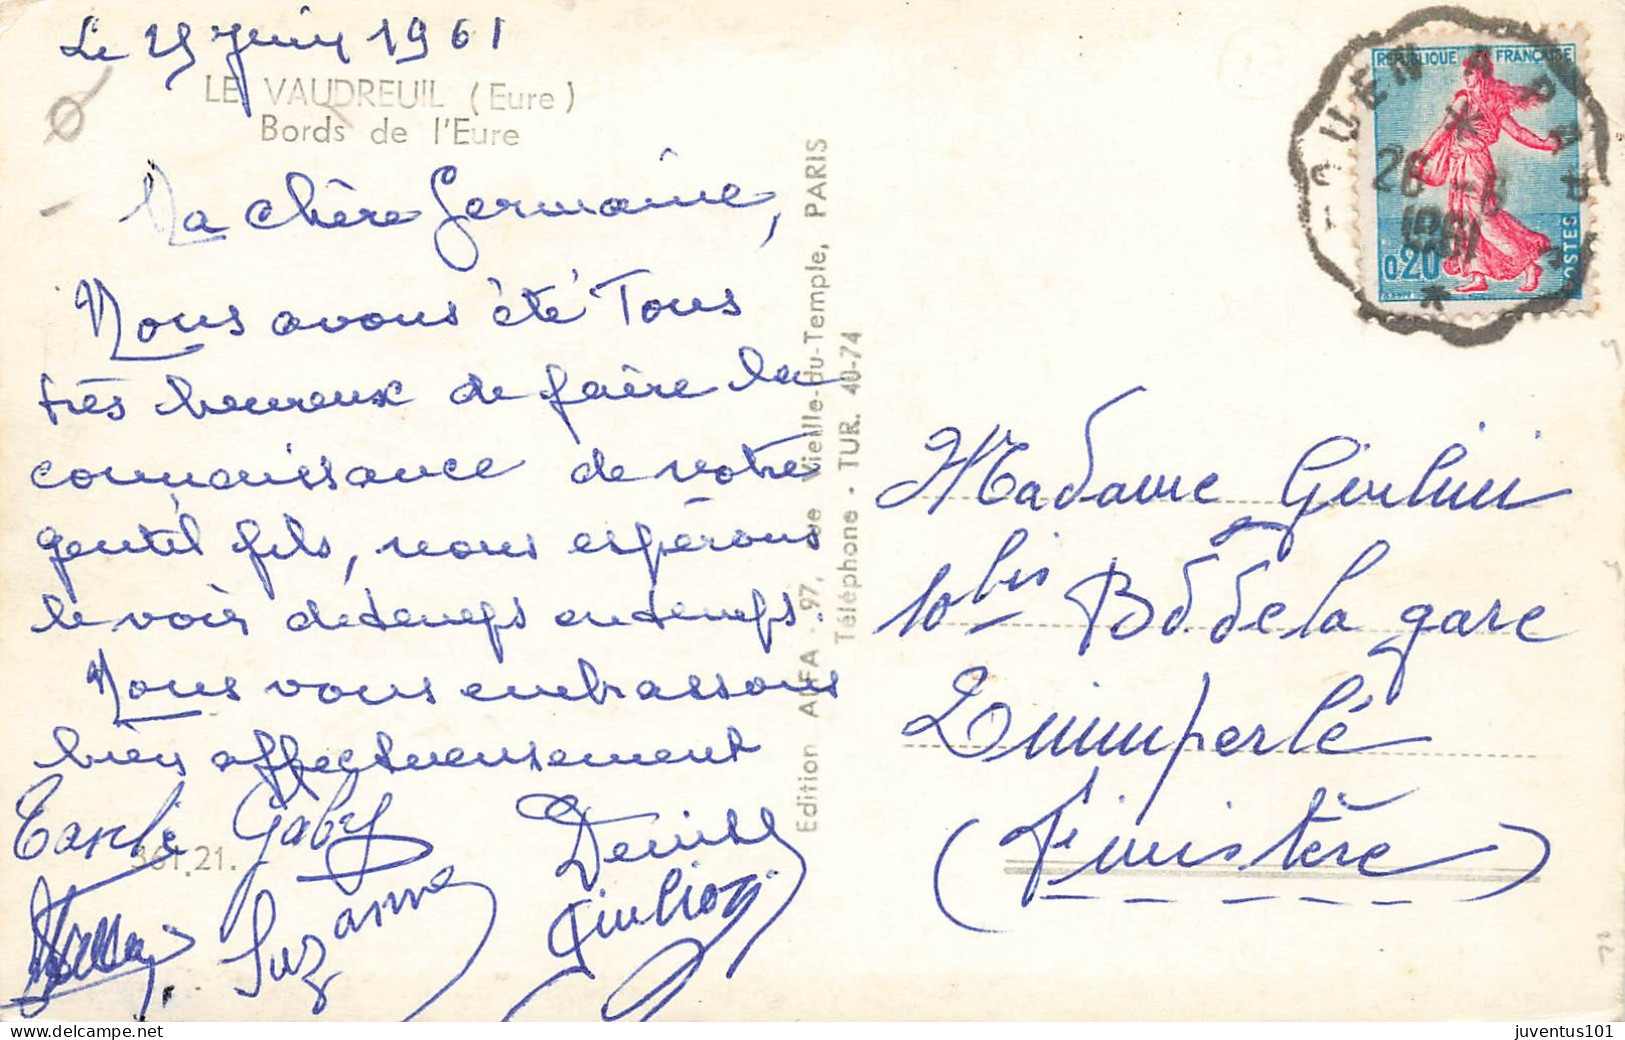 Le 25 Juin 1961
LE VAUDREUIL (Eure)
Bords de l'Eure
Ma chère Germaine,
Nous avons été Tous
très heureux de faire la
connaissance de votre
gentil fils, nous espérons
le voir de temps en temps.
Nous vous embrassons
bien affectueusement
Gaby
Denise
361.21.
Suzanne
Edition ALFA - 97, rue Vieille-du-Temple, PARIS
Téléphone - TUR. 40-74
REPUBLIQUE FRANÇAISE
0,20
POSTES
ROUEN
26 - 6
1961
Madame
10 bis Bd. de la gare
Quimperlé
(Finistère)
juventus101